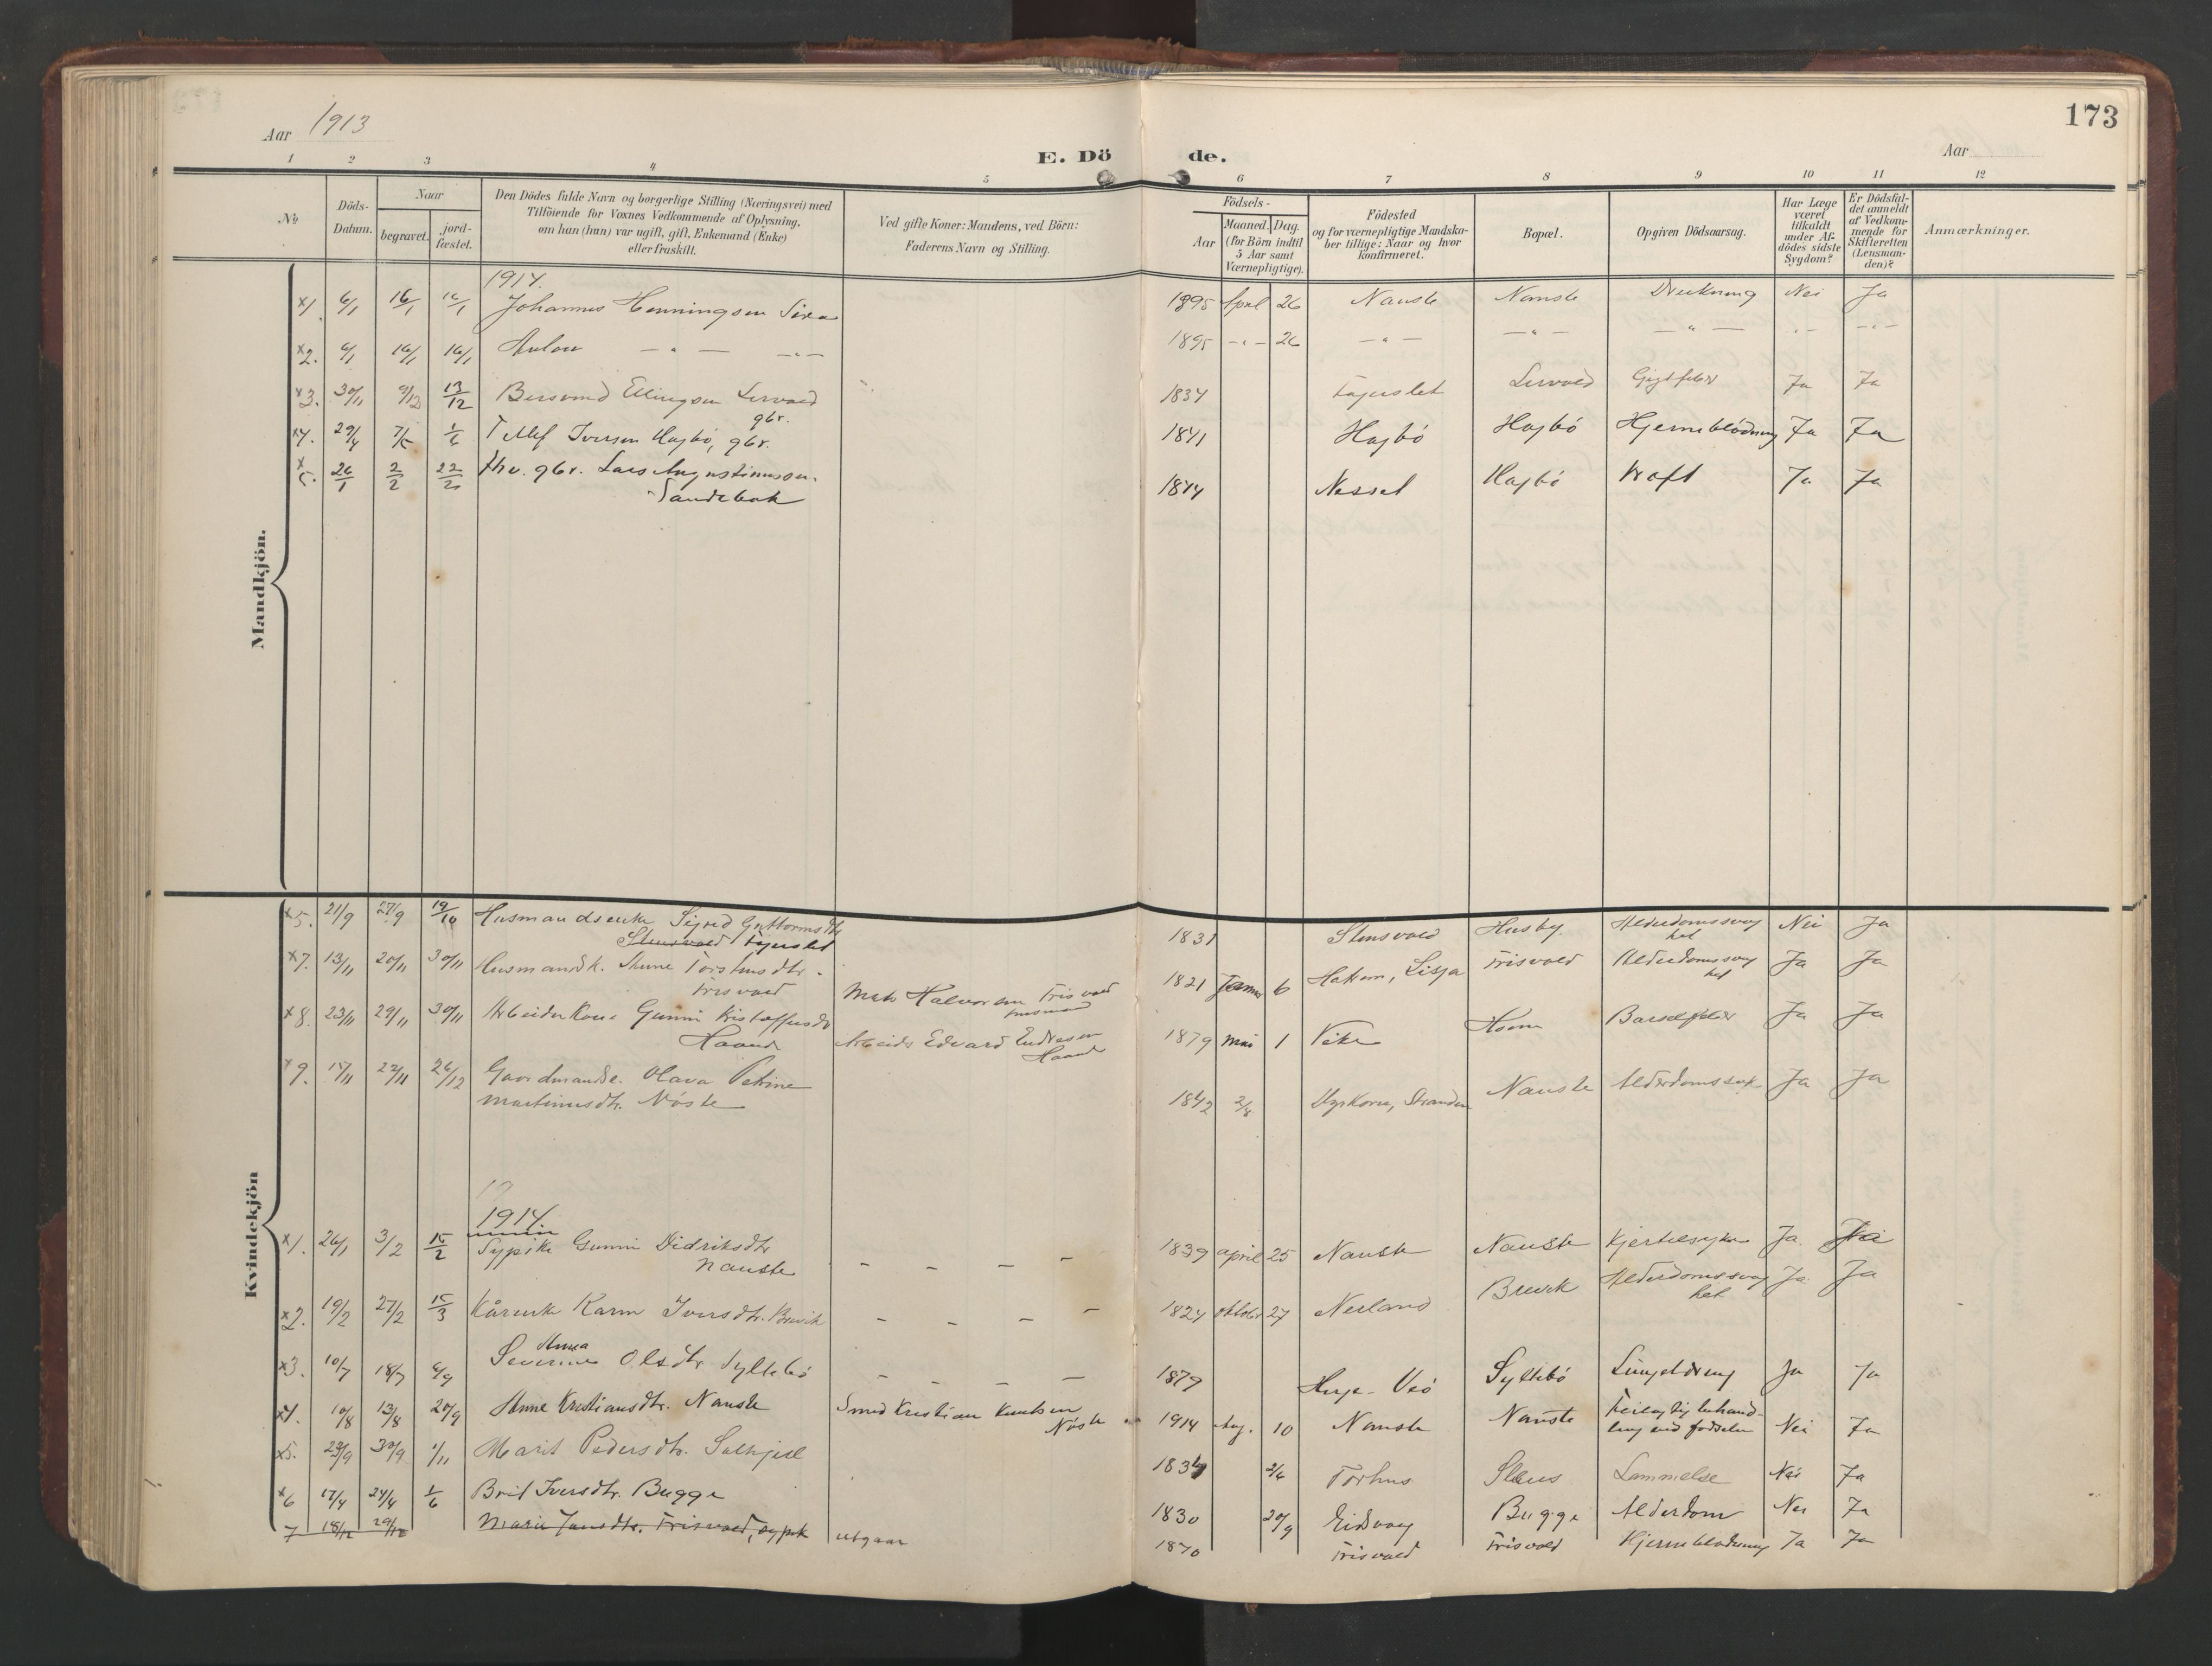 173
Aar 1913
E. Döde.
Aar
1 2 3 4 5 6 7 8 9 10 11 12
No.
Döds-Datum.
Naar
begravet.
jord-fæstet.
Den Dödes fulde Navn og borgerlige Stilling (Næringsvei) med
Tilföiende for Voxnes Vedkommende af Oplysning,
om han (hun) var ugift, gift, Enkemand (Enke)
eller fraskilt.
Ved gifte Koner: Mandens, ved Börn:
Faderens Navn og Stilling.
Födsels-
Aar
Maaned. Dag.
(for Börn indtil
5 Aar samt
Værnepligtige).
Födested
og for værnepligtige Mandska-
ber tillige: Naar og hvor
konfirmeret.
Bopæl.
Opgiven Dödsaarsag.
Har Læge
været
tilkaldt
under Af-
dödes sidste
Sygdom?
Er Dödsfal-
det anmeldt
af Vedkom-
mende for
Skifteretten
(Lensman-
den)?
Anmærkninger.
Mandkjön.
1914.
x1. 6/1 16/1 16/1 Johannes Henningsen Sira 1895 April 26 Nauste Nauste Drukning Nei Ja
x2. 6/1 16/1 16/1 Anton — " — — " — 1895 — " — 26 — " — — " — — " — " — — " —
x3. 30/11 9/12 13/12 Bersvend Ellingsen Lervold
gbr. 1834 Fagerslet Lervold Gigtfeber Ja Ja
x4. 29/4 7/5 1/6 Tellef Iversen Hagbö, gbr. 1841 Hagbö Hagbö Hjerneblödning Ja Ja
x5. 26/1 2/2 22/2 Fhv. gbr. Lars Augustinussen
Sandebak 1844 Nesset Hagbö Kræft Ja Ja
Kvindekjön
x5. 21/9 27/9 19/10 Husmandsenke Sigrid Guttormsdtr
Stensvold Fagerslet 1831 Stensvold Husby Alderdomssvag
het Nei Ja
x7. 13/11 20/11 30/11 Husmandsk. Anne Torstensdtr.
Frisvold Mads Halvorsen Frisvold
husmand 1821 Januar 6 Lesja Frisvold Alderdomssvag
het Ja Ja
x8. 23/11 29/11 30/11 Arbeiderkone Gunni Kristoffersdtr
Haand Arbeider Edvard Endresen
Haand 1879 Mai 1 Vike Barselfeber Ja Ja
x9. 15/11 22/11 26/12 Gaardmandse. Olava Petrine
Martinusdtr. Nöste 1842 2/8 Uyrkorn, Stranden Nauste Alderdomssvak Ja Ja
1914
x1. 26/1 3/2 15/2 Sypike Gunni Didriksdtr
Nauste - - - - 1839 april 25 Nauste Nauste Hjertesyke Ja Ja
x2. 19/2 27/2 15/3 Kårenke Karen Iversdtr. Brevik - - - - - 1824 oktober 27 Nerland Brevik Alderdomssvag
het Ja Ja
x3. 10/7 18/7 6/9 Anna
Severine Olsdtr Syltebö - - - - 1879 Veö Syltebö Lungetæring Ja Ja
x4. 10/8 13/8 20/9 Anne Kristiansdtr. Nauste Smed Kristian Knutsen
Nöste 1914 Aug. 10 Nauste Nauste Feilagtig behand-
ling ved fødselen Nei Ja
x5. 23/9 30/9 1/11 Marit Pedersdtr. Solhjell 1834 2/6 Torhus Slenes Lammelse Nei Ja
x6 17/4 24/4 1/6 Brit Iversdtr. Bugge 1830 20/9 Eidsvaag Bugge Alderdom Nei Ja
7 18/12 29/12 Marie Jansdtr. Frisvold, sypik utgaar 1870 Frisvold Frisvold Hjerneblødning Ja Ja